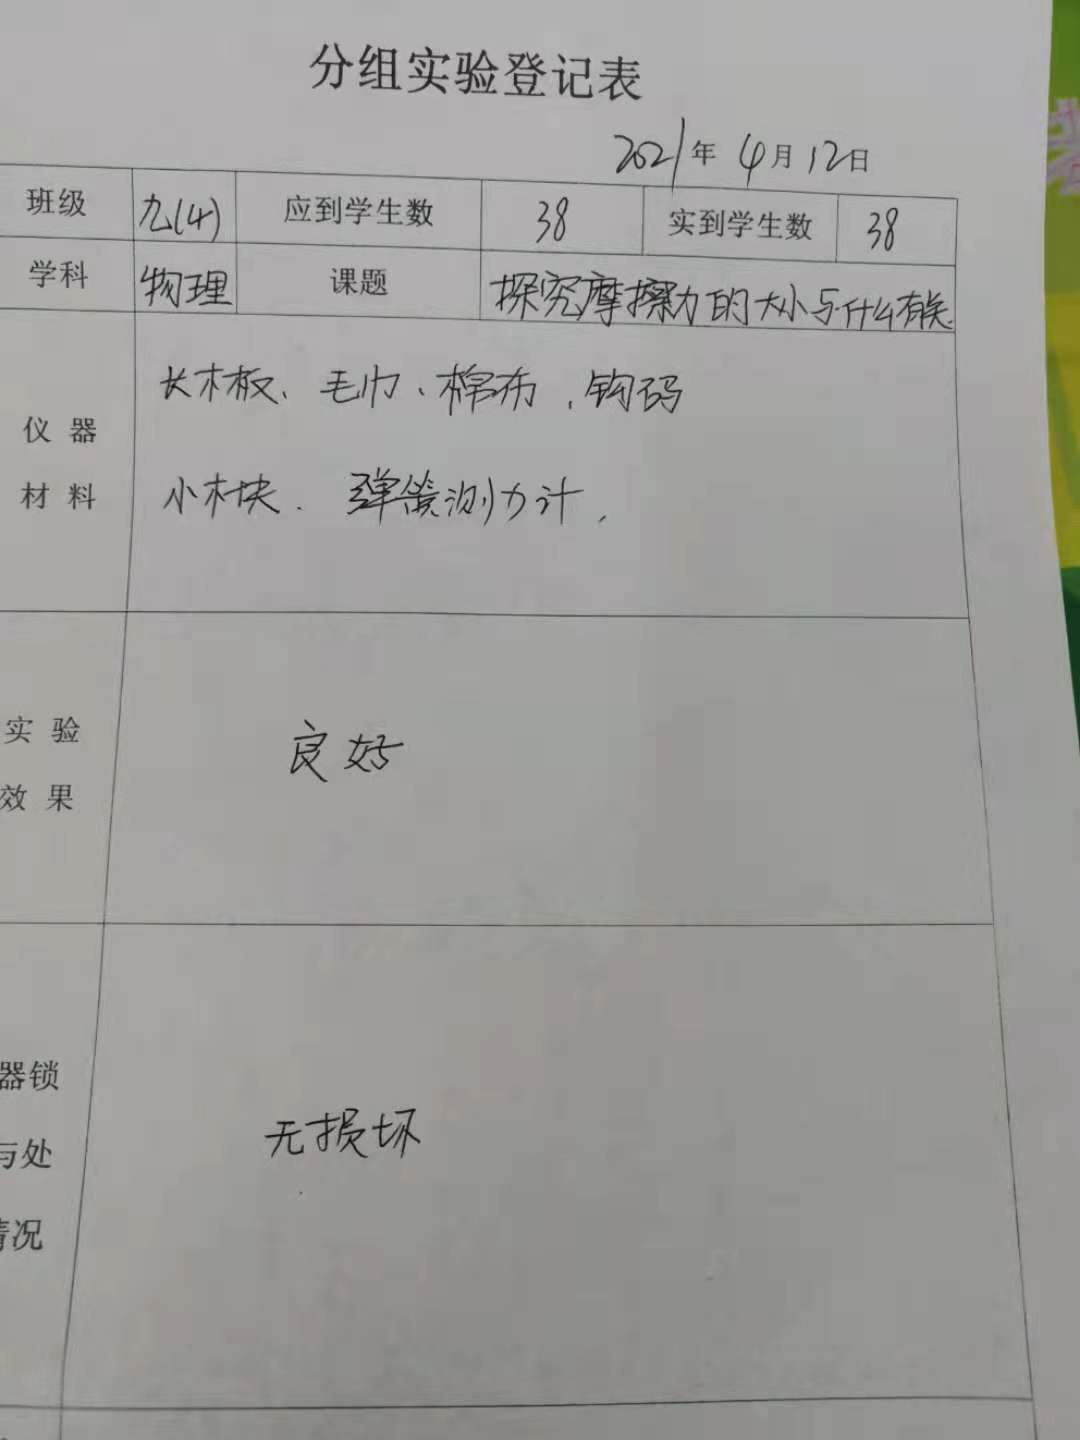 分组实验登记表
2021年 4月 12日
班级 九(4) 应到学生数 38 实到学生数 38
学科 物理 课题 探究摩擦力的大小与什么有关
仪器 长木板、毛巾、棉布、钩码
材料 小木块、弹簧测力计、
实验
效果 良好
器锁
与处 无损坏
情况